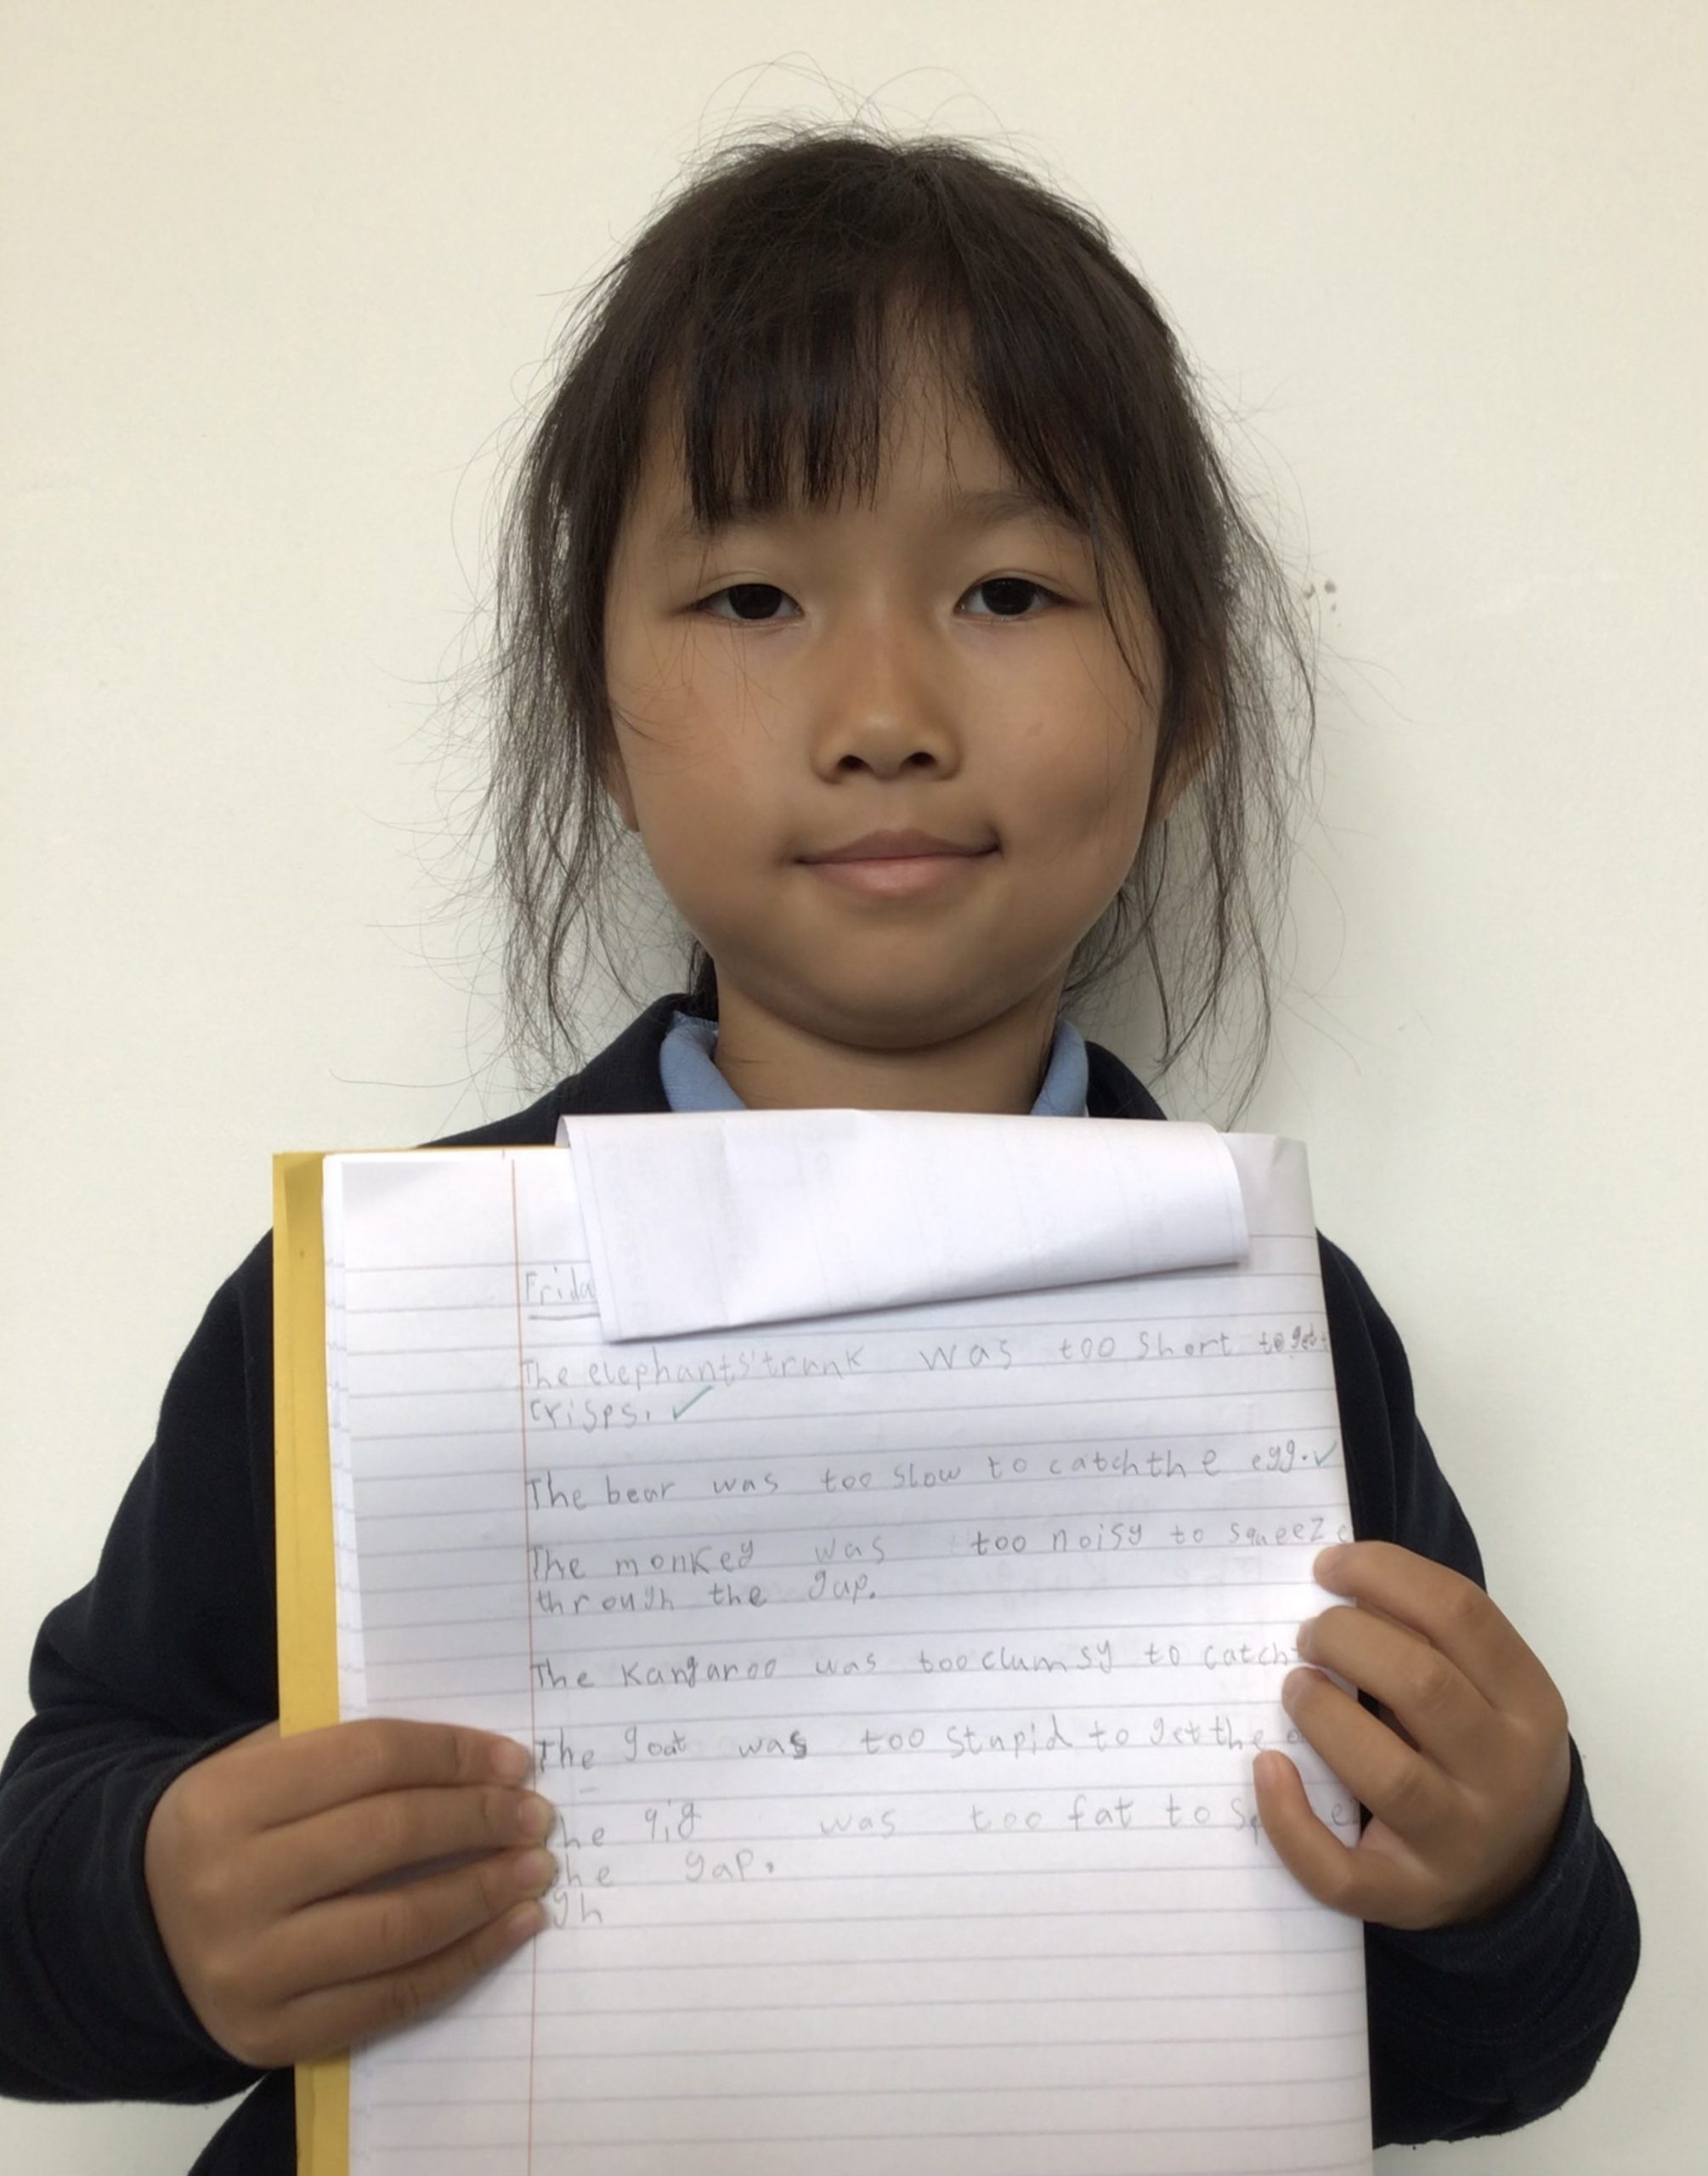 Frida
The elephants' trunk was too short to get
crisps.
The bear was too slow to catch the egg.
The monkey was too noisy to squeeze
through the gap.
The Kangaroo was too clumsy to catch
The goat was too stupid to get the
he gig was too fat to
he gap.
gh